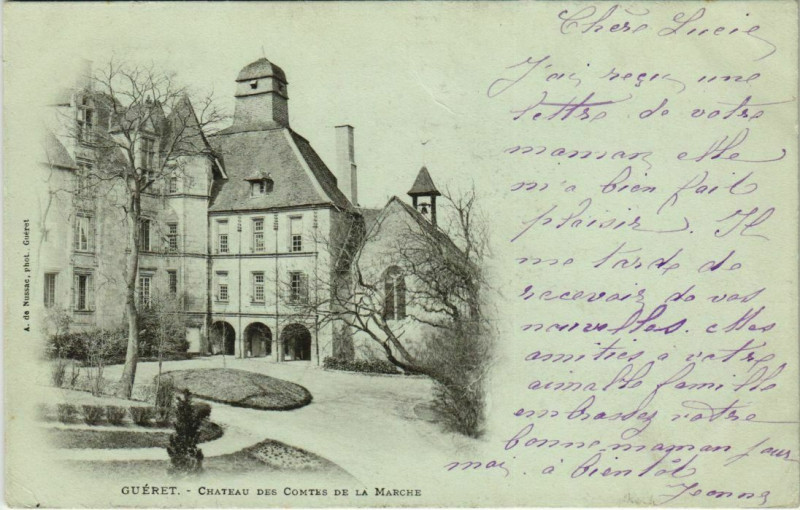 Chère Lucie
J'ai reçu une
lettre de votre
maman elle
m'a bien fait
plaisir. Il
me tarde de
recevoir de vos
nouvelles. Mes
amitiés à votre
aimable famille
embrassez votre
bonne maman pour
moi. à bientôt
Jeanne
A. de Nussac, phot. Guéret
GUÉRET. - CHATEAU DES COMTES DE LA MARCHE